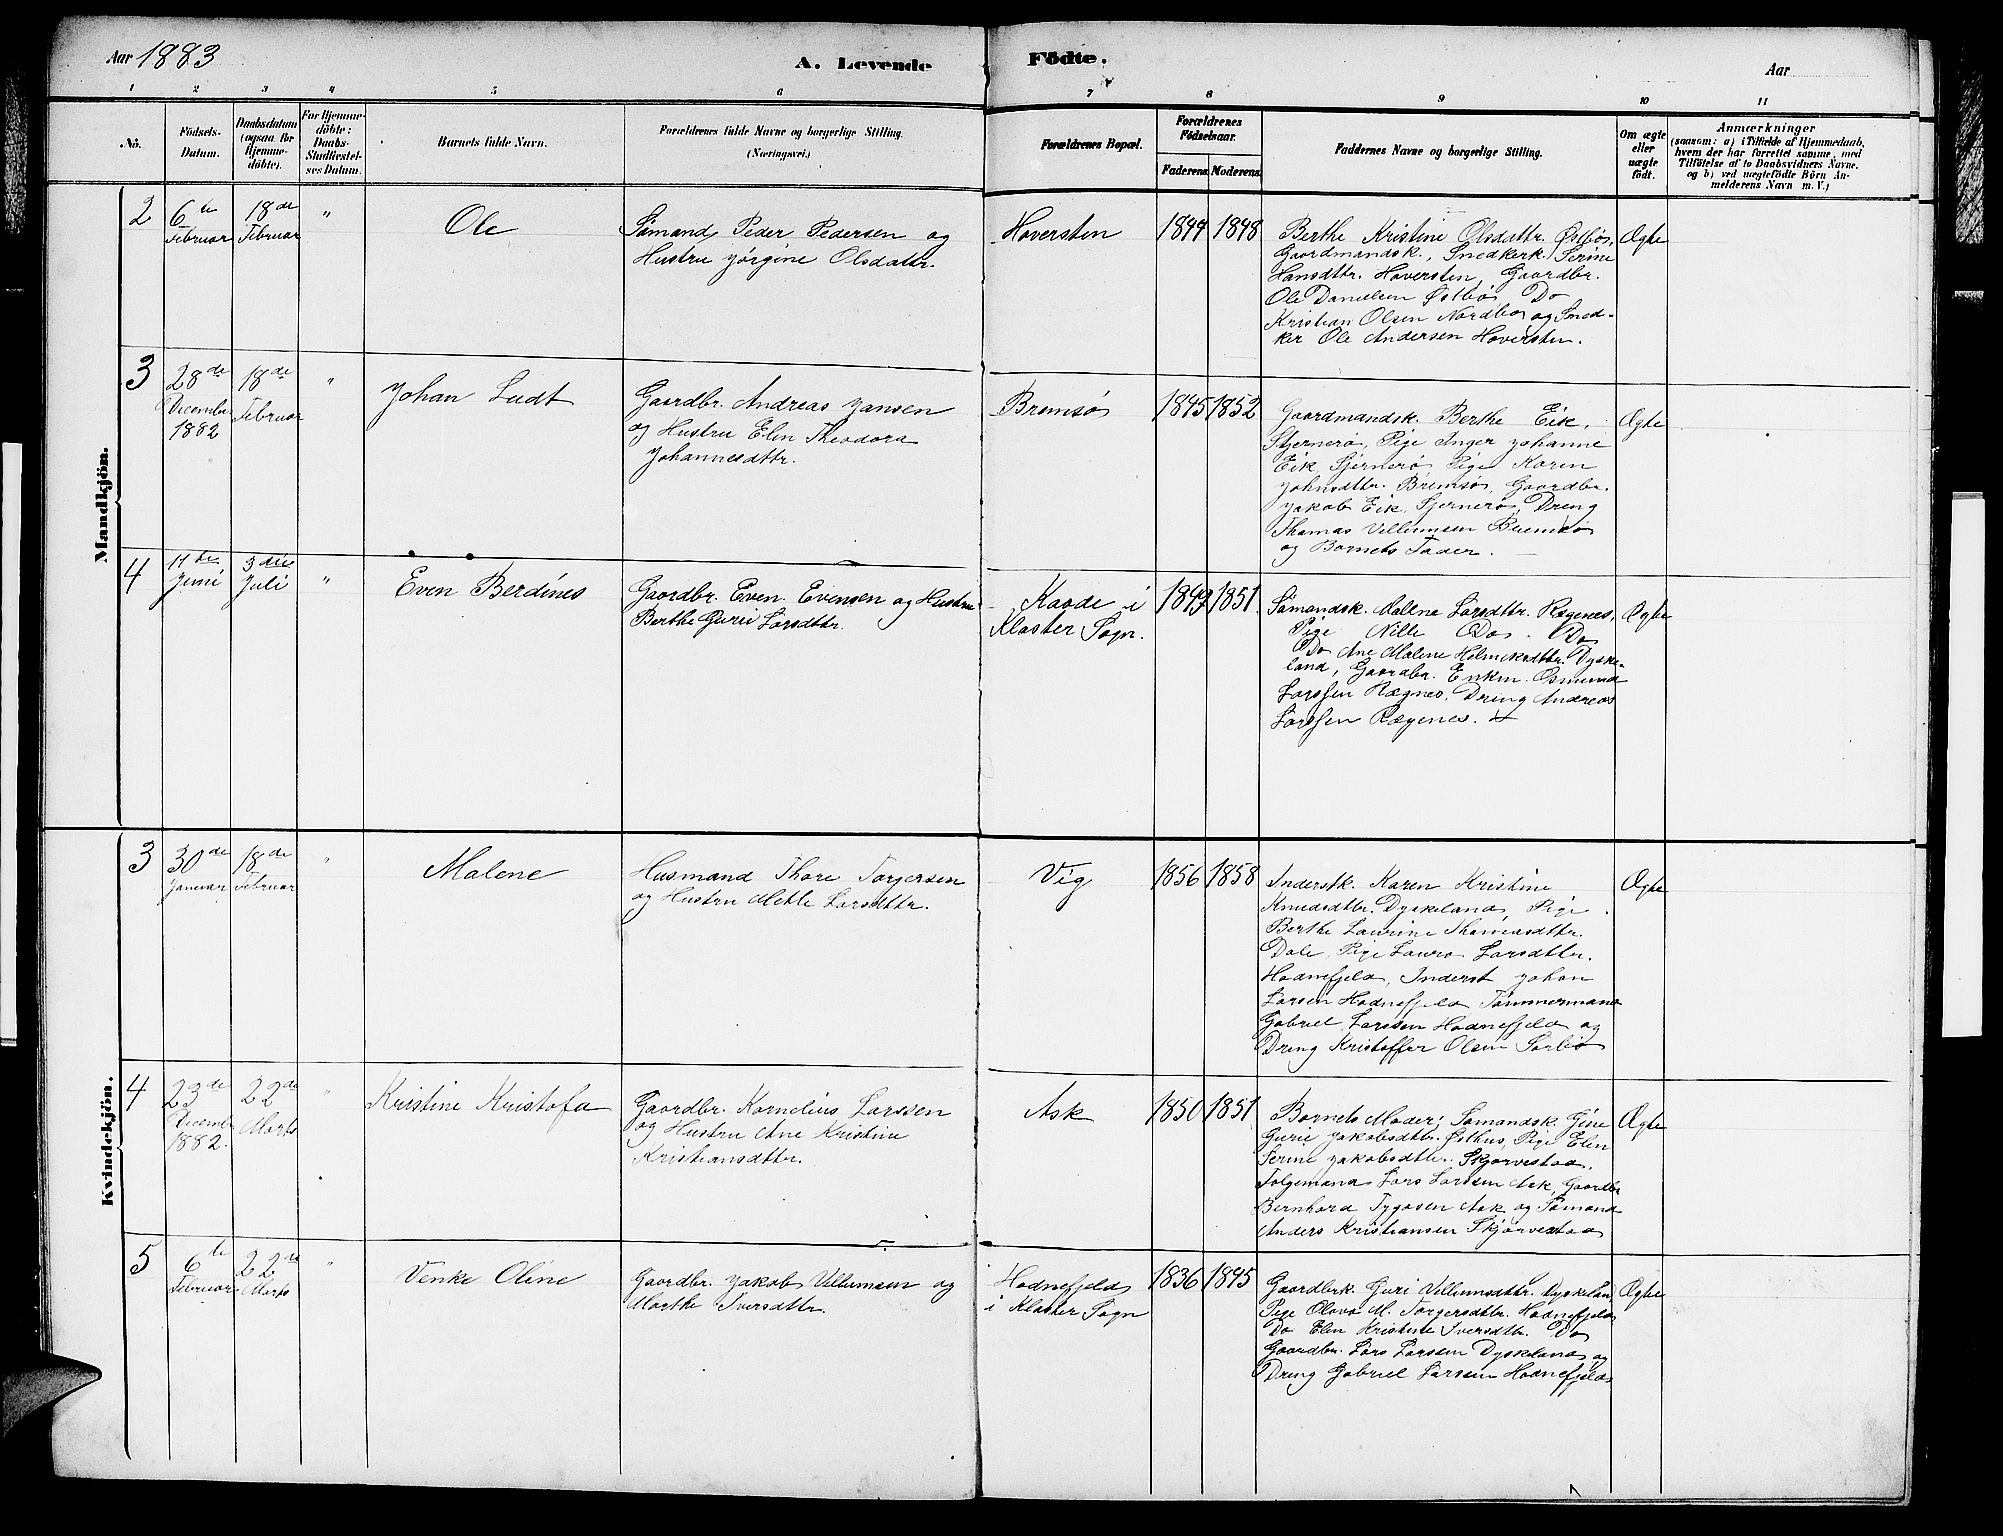 Aar 1883
A. Levende Födte.
Aar
1 2 3 4 5 6 7 8 9 10 11
No.
Födsels-
Datum.
Daabsdatum
(ogsaa for
Hjemme-
döbte).
For Hjemme-
döbte:
Daabs-
Stadfæstel-
ses Datum.
Barnets fulde Navn.
Forældrenes fulde Navne og borgerlige Stilling.
(Næringsvei.)
Forældrenes Bopæl.
Forældrenes
Födselsaar.
Faderens. Moderens.
Faddernes Navne og borgerlige Stilling.
Om ægte
eller
uægte
født.
Anmærkninger
(saasom: a) i Tilfælde af Hjemmedaab,
hvem der har forrettet samme, med
Tilföielse af to Daabsvidners Navne,
og b) ved uægtefödte Börn An-
melderens Navn m. V.)
Mandkjön.
2
6te
Februar
18de
Februar
"
Ole
Sömand Peder Pedersen og
Hustru Jörgine Olsdattr.
Haversten
1844 1848
Berthe Kristine Olsdattr. Østbø,
Gaardmandsk., Snedkerk. Serine
Hansdttr. Haversten, Gaardbr.
Ole Danielsen Østbø Do
Kristian Olsen Nordbø og Sned-
ker Ole Andersen Haversten.
Ægte
3
28de
Decembr
1882
18de
Februar
"
Johan Ludt
Gaardbr. Andreas Jansen
og Hustru Elen Theodora
Johannesdttr.
Bremsø
1845 1852
Gaardmandsk. Berthe Eik,
Stjernerø, Pige Inger Johanne
Eik, Sjernerø, Pige Karen
Johnsdttr. Bremsø, Gaardbr.
Jakob Eik, Sjernerø, Dreng
Thomas Villumsen Bremsø
og Barnets Fader.
Ægte
4
11te
Juni
3die
Juli
"
Even Berdines
Gaardbr. Even Evensen og Hustru
Berthe Gurie Larsdttr.
Kaade i
Kloster Sogn.
1849 1851
Sömandsk. Malene Larsdttr. Rægenes,
Pige Nille Do. Do
Do Ane Malene Helmiksdttr. Dyske-
land, Gaardbr. Enkm. Osmund
Larssen Rægnes, Dreng Andreas
Larssen Rægenes.
Ægte
Kvindekjön.
3
30de
Januar
18de
Februar
"
Malene
Husmand Thore Torgersen
og Hustru Mette Larsdttr.
Vig
1856 1858
Inderstk. Karen Kristine
Knudsdttr. Dyskeland, Pige
Berthe Laurine Thomasdttr.
Dale, Pige Laura Larsdttr.
Hodnefjeld, Inderst Johan
Larsen Hodnefjeld Tømmermand
Gabriel Larssen Hodnefjeld og
Dreng Kristoffer Olsen Sørbø
Ægte
4
23de
Decembr
1882.
22de
Marts
"
Kristine Kristofa
Gaardbr. Kornelius Larssen
og Hustru Ane Kristine
Kristiansdttr.
Ask
1850 1851
Barnets Moder, Sømandsk. Gine
Gurie Jakobsdttr. Østhus, Pige Elen
Serine Jakobsdttr. Skjørvestad,
Folgemand Lars Larssen Ask, Gaardbr
Bernhard Tygesen Ask og Sømand
Anders Kristiansen Skjørvestad
Ægte
5
6te
Februar
22de
Marts
"
Venke Oline
Gaardbr. Jakob Villumsen og
Marthe Iversdttr.
Hodnefjeld
i Kloster Sogn
1836 1845
Gaardbrk. Guri Villumsdttr. Dyskeland
Pige Olava M. Torgersdttr. Hodnefjeld
Do Elen Kristine Iversdttr. Do
Gaardbr. Lars Larssen Dyskeland og
Dreng Gabriel Larssen Hodnefjeld
Ægte